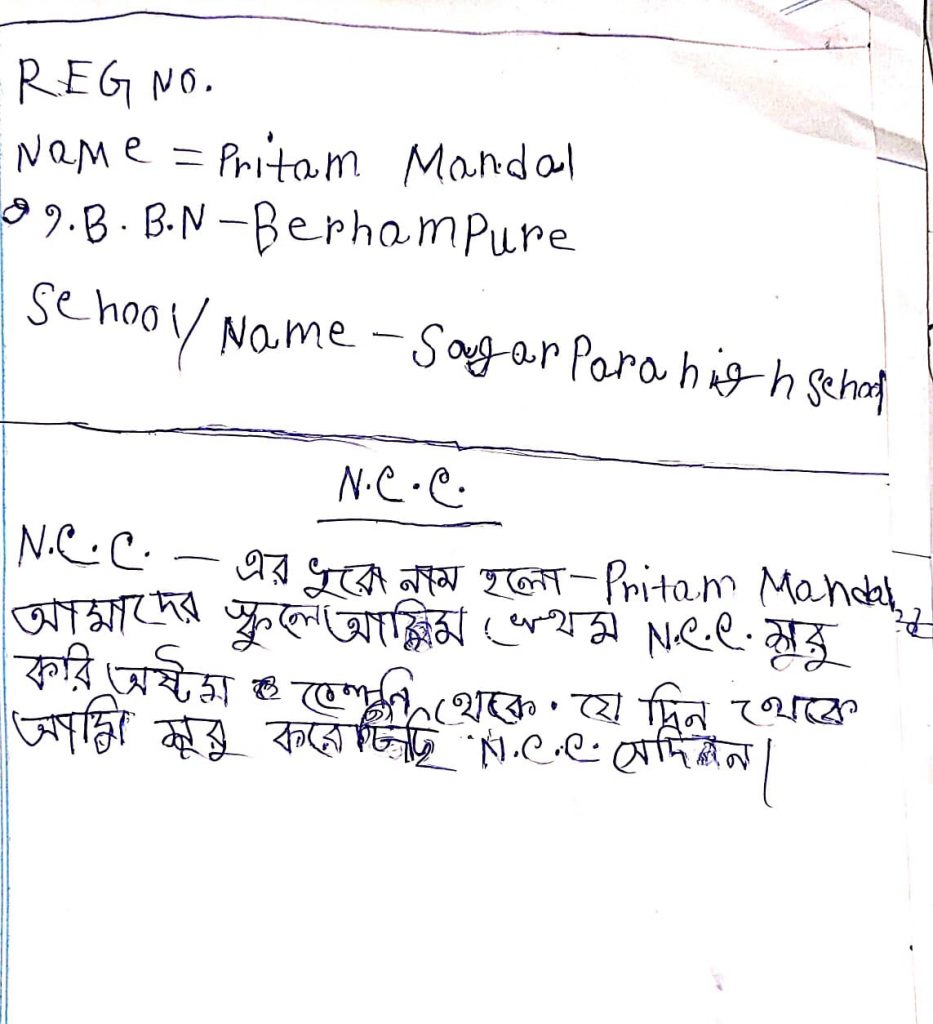 REG NO.
Name = Pritam Mandal
9.B. B.N - Berhampure
School/Name - Sagar Para high School
N.C.C.
N.C.C. - এর পুরো নাম হলো - Pritam Mandal
আমাদের স্কুলে আমি প্রথম N.C.C. সুরু
করি অষ্টম শ্রেণী থেকে. যে দিন থেকে
আমি সুরু করেছি N.C.C. সেদিন।